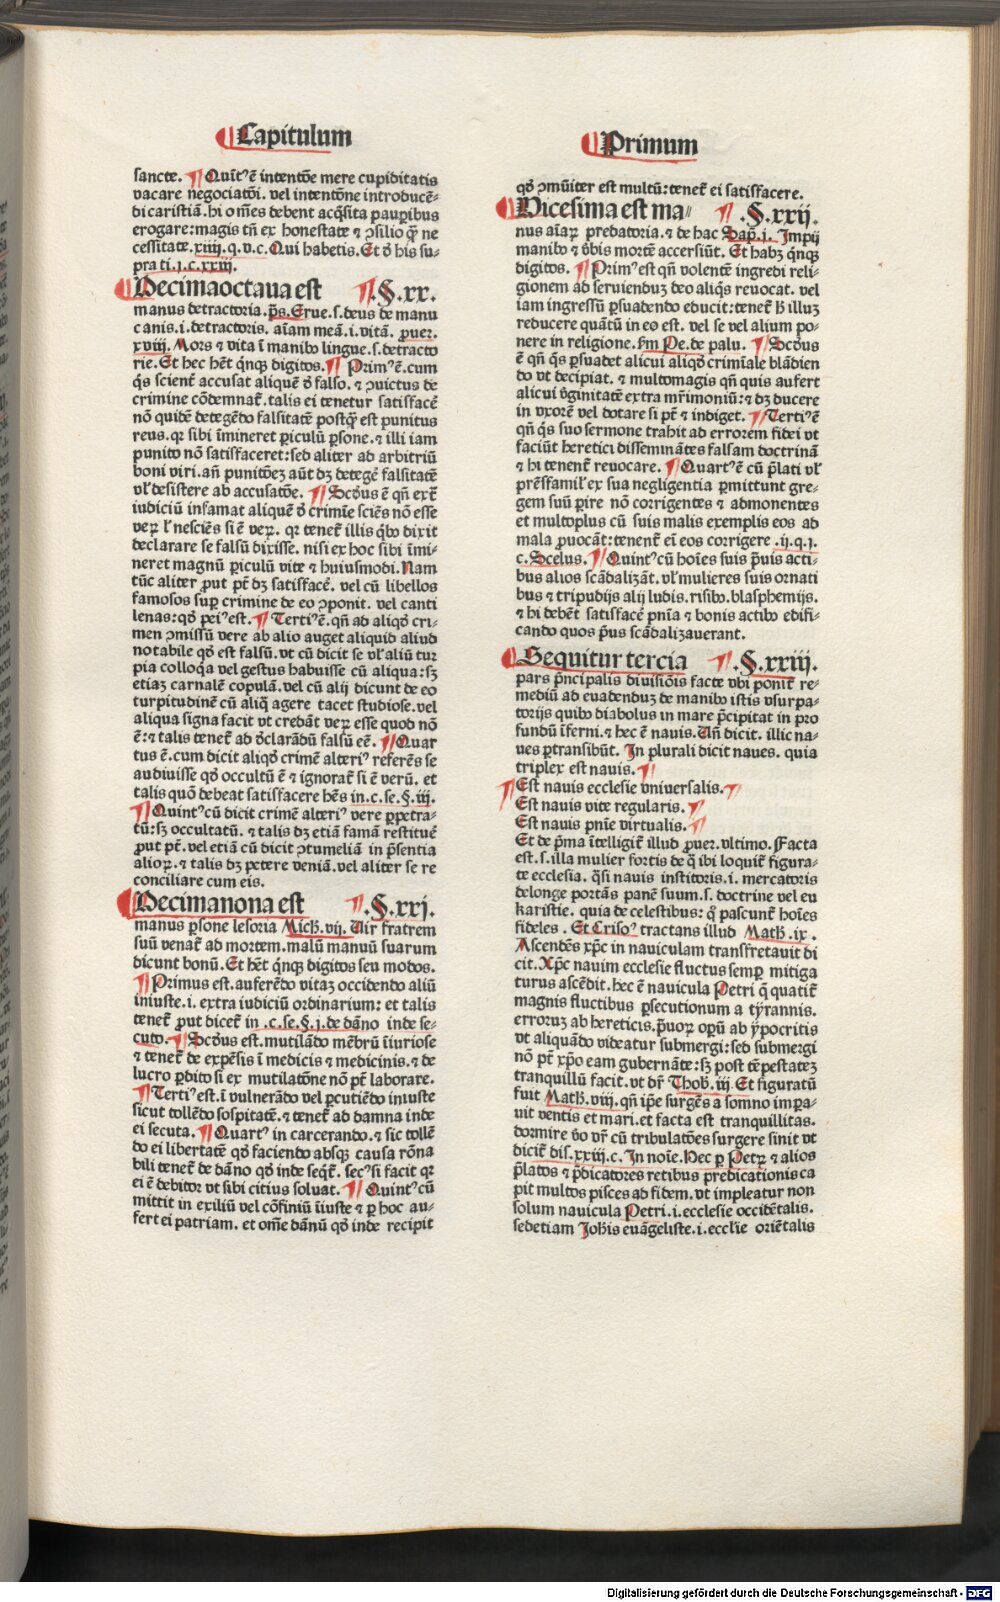 Capitulum
Primum
sancte. ¶ Quītꝰ ē intentōe mere cupiditatis
vacare negociatōi. vel intentōne introducē⸗
di caristiā. hi om̄es debent acq̄sita paupibus
erogare: magis tn̄ ex honestate ⁊ ꝯsilio q̄ ne
cessitate. xiiij. q. v. c. Qui habetis. Et ð his su⸗
pra ti. j. c. xxiij.
Decimaoctaua est ¶ .§. xx.
manus detractoria. ps̄. Erue. s. deus de manu
canis. i. detractoris. aīam meā. i. vitā. ꝓuer.
xviij. Mors ⁊ vita ī manibꝰ lingue. s. detracto
rie. Et hec hēt q̄nqꝫ digitos. ¶ Primꝰ ē. cum
q̄s scient̄ accusat aliquē ð falso. ⁊ ꝯuictus de
crimine cōdemnat̄. talis ei tenetur satisfacē
nō quidē detegēdo falsitatē postq̄ est punitus
reus. qꝛ sibi īmineret ꝑiculū ꝑsone. ⁊ illi iam
punito nō satisfaceret: sed aliter ad arbitriū
boni viri. an̄ punitōeꝫ aūt dꝫ detegē falsitatē
vl̄ desistere ab accusatōe. ¶ Scðus ē qn̄ ext̄
iudiciū infamat aliquē ð crimīe sciēs nō esse
veꝝ l̄ nesciēs si ē veꝝ. qꝛ tenet̄ illis q̄bꝰ dixit
declarare se falsū dixisse. nisi ex hoc sibi īmi⸗
neret magnū ꝑiculū vite ⁊ huiusmodi. Nam
tūc aliter ꝓut pt̄ dꝫ satisfacē. vel cū libellos
famosos suꝑ crimine de eo ꝯponit. vel canti
lenas: qð peiꝰ est. ¶ Tertiꝰ ē. qn̄ ad aliqð cri⸗
men ꝯmissū vere ab alio auget aliquid aliud
notabile qð est falsū. vt cū dicit se vl̄ aliū tur
pia colloq̄a vel gestus habuisse cū aliqua: sꝫ
etiaꝫ carnalē copulā. vel cū alij dicunt de eo
turpitudinē cū aliq̄ agere tacet studiose. vel
aliqua signa facit vt credāt veꝝ esse quod nō
ē: ⁊ talis tenet̄ ad ðclarādū falsū eē. ¶ Quar
tus ē. cum dicit aliqð crimē alteriꝰ referēs se
audiuisse qð occultū ē ⁊ ignorat̄ si ē verū. et
talis quō debeat satisfacere hēs in. c. se. §. iij.
¶ Quintꝰ cū dicit crimē alteriꝰ vere ꝑpetra⸗
tū: sꝫ occultatū. ⁊ talis dꝫ etiā famā restituē
ꝓut pt̄. vel etiā cū dicit ꝯtumeliā in p̄sentia
alioꝝ. ⁊ talis dꝫ petere veniā. vel aliter se re
conciliare cum eis.
Decimanona est ¶ .§. xxj.
manus ꝑsone lesoria Mich̄. vij. Uir fratrem
suū venat̄ ad mortem. malū manuū suarum
dicunt bonū. Et hēt q̄nqꝫ digitos seu modos.
¶ Primus est. auferēdo vitaꝫ occidendo aliū
iniuste. i. extra iudiciū ordinarium: et talis
tenet̄ ꝓut dicet̄ in .c. se. §. j. de dāno inde se⸗
cuto. ¶ Scðus est. mutilādo mēbrū īiuriose
⁊ tenet̄ de expēsis ī medicis ⁊ medicinis. ⁊ de
lucro ꝑdito si ex mutilatōne nō pt̄ laborare.
¶ Tertiꝰ est. ī vulnerādo vel ꝑcutiēdo iniuste
sicut tollēdo sospitatē. ⁊ tenet̄ ad damna inde
ei secuta. ¶ Quartꝰ in carcerando. ⁊ sic tollē
do ei libertatē qð faciendo absqꝫ causa rōna
bili tenet̄ de dāno qð inde seqt̄. secꝰ si facit qꝛ
ei ē debitor vt sibi citius soluat. ¶ Quintꝰ cū
mittit in exiliū vel cōfiniū īiuste ⁊ ꝑ hoc au⸗
fert ei patriam. et om̄e dānū qð inde recipit
qð ꝯmūiter est multū: tenet̄ ei satisfacere.
Vicesima est ma⸗ ¶ .§. xxij.
nus aīaꝝ predatoria. ⁊ de hac Sap̄. j. Impij
manibꝰ ⁊ ðbis mortē accersiūt. Et habꝫ q̄nqꝫ
digitos. ¶ Primꝰ est qn̄ volentē ingredi reli⸗
gionem ad seruienduꝫ deo aliq̄s reuocat. vel
iam ingressū ꝑsuadendo educit: tenet̄ h̄ illuꝫ
reducere quātū in eo est. vel se vel alium po⸗
nere in religione. s̄m Pe. de palu. ¶ Scðus
ē qn̄ q̄s ꝑsuadet alicui aliqð crimīale blādien
do vt decipiat. ⁊ multomagis qn̄ quis aufert
alicui ðginitatē extra mr̄imoniū: ⁊ dꝫ ducere
in vxorē vel dotare si pt̄ ⁊ indiget. ¶ Tertiꝰ ē
qn̄ q̄s suo sermone trahit ad errorem fidei vt
faciūt heretici disseminātes falsam doctrinā
⁊ hi tenent̄ reuocare. ¶ Quartꝰ ē cū p̄lati vl̄
pr̄esfamil̓ ex sua negligentia ꝑmittunt gre⸗
gem suū ꝑire nō corrigentes ⁊ admonentes
et multoplus cū suis malis exemplis eos ad
mala ꝓuocāt: tenent̄ ei eos corrigere .ij. q. j.
c. Scelus. ¶ Quintꝰ cū hoīes suis p̄uis acti⸗
bus alios scādalizāt. vl̄ mulieres suis ornati
bus ⁊ tripudijs alij ludis. risibꝰ. blasphemijs.
⁊ hi debēt satisfacē pn̄ia ⁊ bonis actibꝰ edifi⸗
cando quos p̄us scādalizauerant.
Sequitur tercia ¶ .§. xxiij.
pars p̄ncipalis diuisiōis facte vbi ponit̄ re⸗
mediū ad euadenduꝫ de manibꝰ istis vsurpa⸗
torijs quibꝰ diabolus in mare p̄cipitat in pro
fundū īferni. ⁊ hec ē nauis. Un̄ dicit. illic na⸗
ues ꝑtransibūt. In plurali dicit naues. quia
triplex est nauis. ¶
¶ Est nauis ecclesie vniuersalis. ¶
Est nauis vite regularis. ¶
Est nauis pn̄ie virtualis. ¶
Et de p̄ma ītelligit̄ illud ꝓuer. vltimo. Facta
est. s. illa mulier fortis de q̄ ibi loquit̄ figura⸗
te ecclesia. q̄si nauis institoris. i. mercatoris
delonge portās panē suum. s. doctrine vel eu
karistie. quia de celestibus: q̄ pascunt̄ hoīes
fideles. Et Crisoꝰ tractans illud Math̄. ix.
Ascendēs xp̄c in nauiculam transfretauit di
cit. Xp̄c nauim ecclesie fluctus semꝑ mitiga
turus ascēdit. hec ē nauicula Petri q̄ quatit̄
magnis fluctibus ꝑsecutionum a tẏrannis.
erroruꝫ ab hereticis. p̄uoꝝ opū ab ẏpocritis
vt aliquādo videatur submergi: sed submergi
nō pt̄ xp̄o eam gubernāte: sꝫ post tēpestateꝫ
tranquillū facit. vt dr̄ Thob̄. iij. Et figuratū
fuit Math̄. viij. qn̄ ip̄e surgēs a somno impa⸗
uit ventis et mari. et facta est tranquillitas.
dormire ðo vr̄ cū tribulatōes surgere sinit vt
dicit̄ dis. xxiij. c. In noīe. Hec ꝑ Petꝝ ⁊ alios
p̄latos ⁊ p̄dicatores retibus predicationis ca
pit multos pisces ad fidem. vt impleatur non
solum nauicula Petri. i. ecclesie occidētalis.
sed etiam Joh̄is euāgeliste. i. eccl̄ie oriētalis
Digitalisierung gefördert durch die Deutsche Forschungsgemeinschaft - DFG